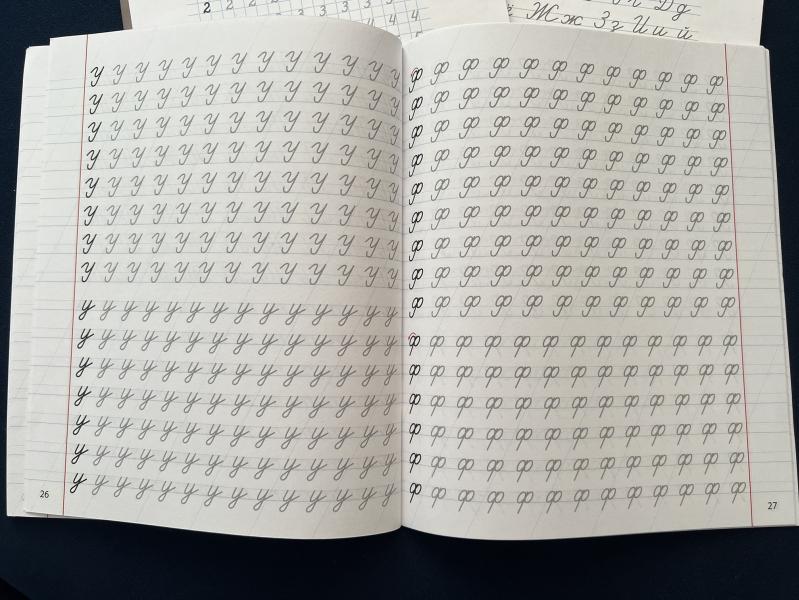 2 2 2 2
3 3 3 3 3
4 4 4
Дд
Жж Зз Ии й
У У У У У У У У У У У У У
У У У У У У У У У У У У У
У У У У У У У У У У У У У
У У У У У У У У У У У У У
У У У У У У У У У У У У У
У У У У У У У У У У У У У
У У У У У У У У У У У У У
У У У У У У У У У У У У У
у у у у у у у у у у у у у у
у у у у у у у у у у у у у у
у у у у у у у у у у у у у у
у у у у у у у у у у у у у у
у у у у у у у у у у у у у у
у у у у у у у у у у у у у у
у у у у у у у у у у у у у у
26
Ф Ф Ф Ф Ф Ф Ф Ф Ф Ф Ф Ф
Ф Ф Ф Ф Ф Ф Ф Ф Ф Ф Ф Ф
Ф Ф Ф Ф Ф Ф Ф Ф Ф Ф Ф Ф
Ф Ф Ф Ф Ф Ф Ф Ф Ф Ф Ф Ф
Ф Ф Ф Ф Ф Ф Ф Ф Ф Ф Ф Ф
Ф Ф Ф Ф Ф Ф Ф Ф Ф Ф Ф Ф
Ф Ф Ф Ф Ф Ф Ф Ф Ф Ф Ф Ф
Ф Ф Ф Ф Ф Ф Ф Ф Ф Ф Ф Ф
Ф Ф Ф Ф Ф Ф Ф Ф Ф Ф Ф Ф
ф ф ф ф ф ф ф ф ф ф ф ф ф
ф ф ф ф ф ф ф ф ф ф ф ф ф
ф ф ф ф ф ф ф ф ф ф ф ф ф
ф ф ф ф ф ф ф ф ф ф ф ф ф
ф ф ф ф ф ф ф ф ф ф ф ф ф
ф ф ф ф ф ф ф ф ф ф ф ф ф
27